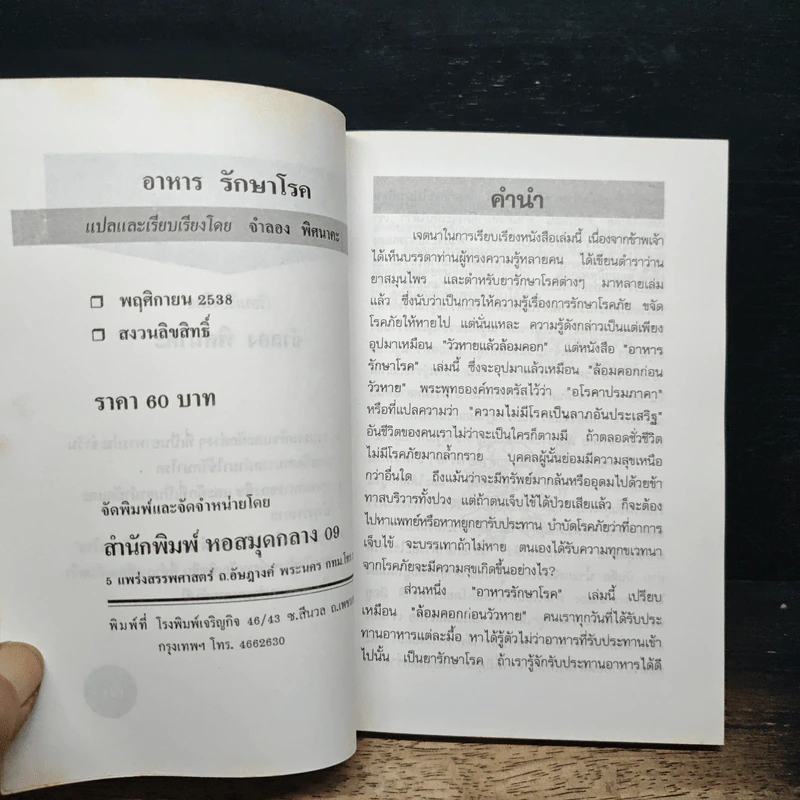 อาหาร รักษาโรค
แปลและเรียบเรียงโดย จำลอง พิศนาคะ
❒ พฤศิกายน 2538
❒ สงวนลิขสิทธิ์
ราคา 60 บาท
จัดพิมพ์และจัดจำหน่ายโดย
สำนักพิมพ์ หอสมุดกลาง 09
5 แพร่งสรรพศาสตร์ ถ.อัษฎางค์ พระนคร กทม.
พิมพ์ที่ โรงพิมพ์เจริญกิจ 46/43 ซ.สีนวล
กรุงเทพฯ โทร. 4662630
คำนำ
เจตนาในการเรียบเรียงหนังสือเล่มนี้ เนื่องจากข้าพเจ้า
ได้เห็นบรรดาท่านผู้ทรงความรู้หลายคน ได้เขียนตำราว่าน
ยาสมุนไพร และตำหรับยารักษาโรคต่างๆ มาหลายเล่ม
แล้ว ซึ่งนับว่าเป็นการให้ความรู้เรื่องการรักษาโรคภัย ขจัด
โรคภัยให้หายไป แต่นั่นแหละ ความรู้ดังกล่าวเป็นแต่เพียง
อุปมาเหมือน "วัวหายแล้วล้อมคอก" แต่หนังสือ "อาหาร
รักษาโรค" เล่มนี้ ซึ่งจะอุปมาแล้วเหมือน "ล้อมคอกก่อน
วัวหาย" พระพุทธองค์ทรงตรัสไว้ว่า "อโรคาปรมภาคา"
หรือที่แปลความว่า "ความไม่มีโรคเป็นลาภอันประเสริฐ"
อันชีวิตของคนเราไม่ว่าจะเป็นใครก็ตามมี ถ้าตลอดชั่วชีวิต
ไม่มีโรคภัยมากล้ำกราย บุคคลผู้นั้นย่อมมีความสุขเหนือ
กว่าอื่นใด ถึงแม้นว่าจะมีทรัพย์มากล้นหรืออุดมไปด้วยข้า
ทาสบริวารทั้งปวง แต่ถ้าตนเจ็บไข้ได้ป่วยเสียแล้ว ก็จะต้อง
ไปหาแพทย์หรือหาหยูกยารับประทาน บำบัดโรคภัยว่าที่อาการ
เจ็บไข้ จะบรรเทาถ้าไม่หาย ตนเองได้รับความทุกขเวทนา
จากโรคภัยจะมีความสุขเกิดขึ้นอย่างไร?
ส่วนหนึ่ง "อาหารรักษาโรค" เล่มนี้ เปรียบ
เหมือน "ล้อมคอกก่อนวัวหาย" คนเราทุกวันที่ได้รับประ
ทานอาหารแต่ละมื้อ หาได้รู้ตัวไม่ว่าอาหารที่รับประทานเข้า
ไปนั้น เป็นยารักษาโรค ถ้าเรารู้จักรับประทานอาหารได้ดี